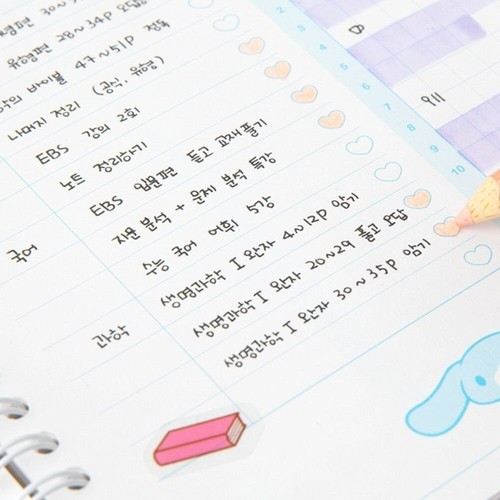 유형편 30~
유형편 28~34P 오답
의 바이블 47~51P 정독
나머지 정리 (공식, 유형)
EBS 강의 2회
노트 정리하기
국어 EBS 입문편 듣고 교재 풀기
지문 분석 + 문제 분석 특강
수능 국어 어휘 5강
과학 생명과학 I 완자 4~12P 암기
생명과학 I 완자 20~29 풀고 오답
생명과학 I 완자 30~35P 암기
2
3
4
5
6
7
8
9
10